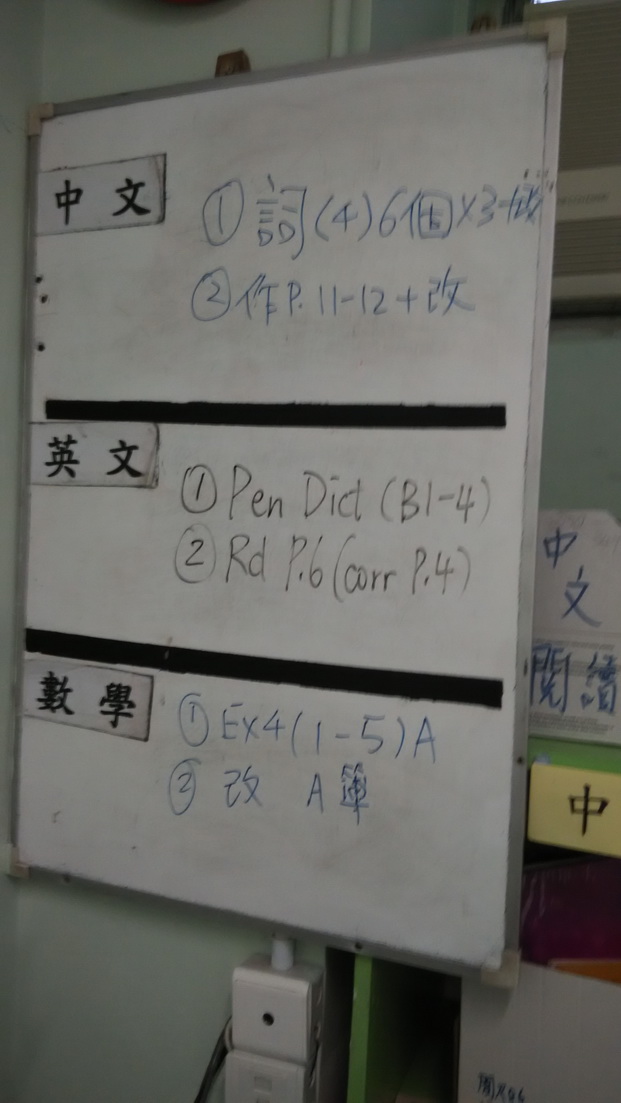 中文
① 詞(4)6個x3
② 作P.11-12+改
英文
① Pen Dict (B1-4)
② Rd P.6 (corr P.4)
數學
① Ex4(1-5)A
② 改 A簿
中
文
閱讀
中